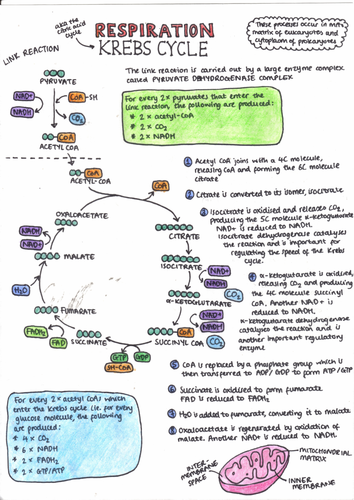 aka the
citric acid
cycle
RESPIRATION
KREBS CYCLE
These processes occur in mito.
matrix of eukaryotes and
cytoplasm of prokaryotes
LINK REACTION
The link reaction is carried out by a large enzyme complex
called PYRUVATE DEHYDROGENASE COMPLEX
PYRUVATE
NAD+
NADH
CoA-SH
CO₂
CoA
ACETYL COA
For every 2x pyruvates that enter the
link reaction, the following are produced:
* 2 x acetyl-CoA
* 2 x CO₂
* 2 x NADH
CoA
ACETYL-COA
CoA
OXALOACETATE
NADH
NAD+
MALATE
H₂O
FUMARATE
FADH₂
FAD
SUCCINATE
GTP
GDP
SH-CoA
CoA
SUCCINYL COA
CO₂
NADH
NAD+
α-KETOGLUTARATE
CO₂
NADH
NAD+
ISOCITRATE
CITRATE
1 Acetyl CoA joins with a 4C molecule,
releasing CoA and forming the 6C molecule
citrate
2 Citrate is converted to its isomer, isocitrate
3 Isocitrate is oxidised and releases CO₂,
producing the 5C molecule α-ketoglutarate
NAD+ is reduced to NADH.
Isocitrate dehydrogenase catalyses
the reaction and is important for
regulating the speed of the Krebs
cycle.
4 α-ketoglutarate is oxidised,
releasing CO₂ and producing
the 4C molecule succinyl
CoA. Another NAD+ is
reduced to NADH.
α-ketoglutarate dehydrogenase
catalyses the reaction and is
another important regulatory
enzyme
5 CoA is replaced by a phosphate group which is
then transferred to ADP/GDP to form ATP/GTP
6 Succinate is oxidised to form fumarate
FAD is reduced to FADH₂
7 H₂O is added to fumarate, converting it to malate
8 Oxaloacetate is regenerated by oxidation of
malate. Another NAD+ is reduced to NADH.
For every 2 x acetyl CoAs which
enter the Krebs cycle (i.e. for every
glucose molecule, the following
are produced:
* 4 x CO₂
* 6 x NADH
* 2 x FADH₂
* 2 x GTP/ATP
INTER-
MEMBRANE
SPACE
MITOCHONDRIAL
MATRIX
INNER
MEMBRANE